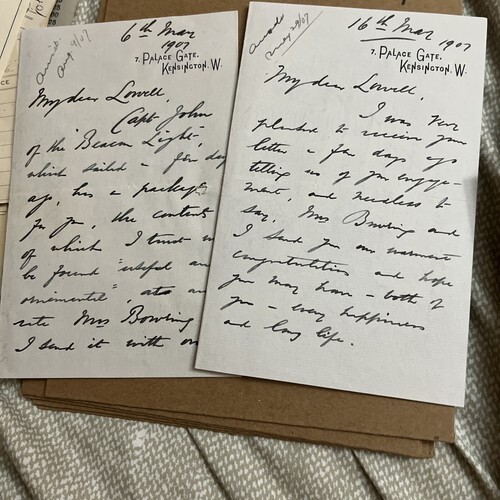 6th Mar 1907
7, PALACE GATE,
KENSINGTON. W.
My dear Lowell,
Capt John
of the "Beacon Light",
which sailed a few days
ago, has a package
for you, the contents
of which I trust
be found "useful and
ornamental", at any
rate Mrs Bowring
I send it with our
16th Mar 1907
7, PALACE GATE,
KENSINGTON. W.
My dear Lowell,
I was very
pleased to receive your
letter a few days ago
telling us of your engage-
ment, and needless to
say, Mrs Bowring and
I send you our warmest
congratulations and hope
you may have - both of
you - every happiness
and long life.